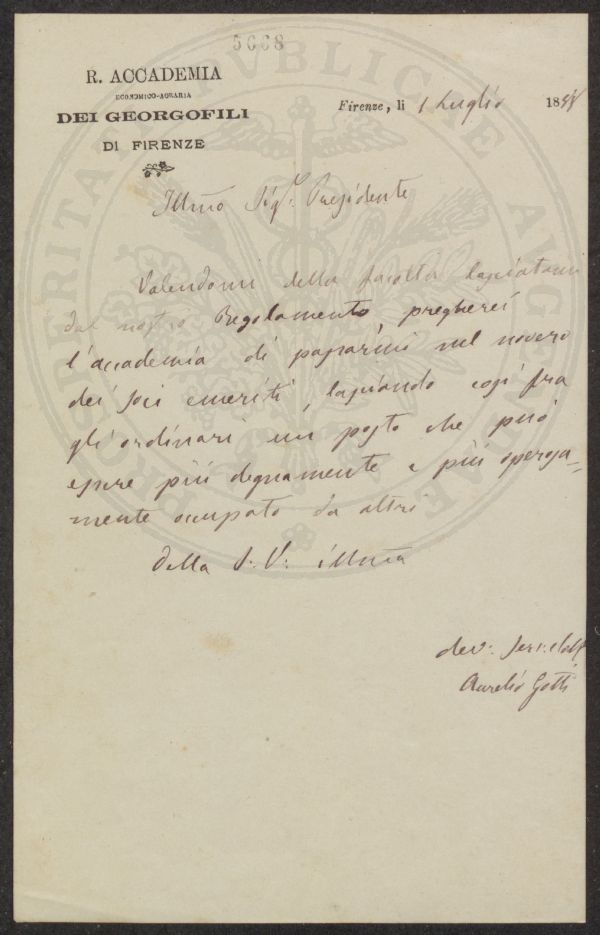 5068
R. ACCADEMIA
ECONOMICO-AGRARIA
DEI GEORGOFILI
DI FIRENZE
Firenze, li 1 Luglio 188
Illmo Sigr. Presidente
Valendomi della facoltà lasciatami
dal nostro Regolamento, pregherei
l'accademia di passarmi nel novero
dei soci emeriti, lasciando così fra
gli ordinari un posto che può
essere più degnamente e più operosa-
mente occupato da altri
Della S. V. illma
dev: serv:
Aurelio Gotti
PROSPERITATI PVBLICAE AVGENDAE